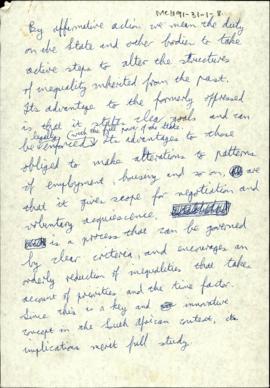 MCH91-31-1-8
By affirmative action we mean the duty
on the State and other bodies to take
active steps to alter the structures
of inequality inherited from the past.
Its advantage to the formerly oppressed
is that it states clear goals and can
be enforced legally (with the full power of the State.
Its advantages to those
obliged to make alterations to patterns
of employment, housing and so on, are
that it gives scope for negotiation and
voluntary acquiescence.
is a process that can be governed
by clear criteria, and encourages an
orderly reduction of inequalities that takes
account of priorities and the time factor.
Since this is a key and innovative
concept in the South African context, its
implications merit full study.